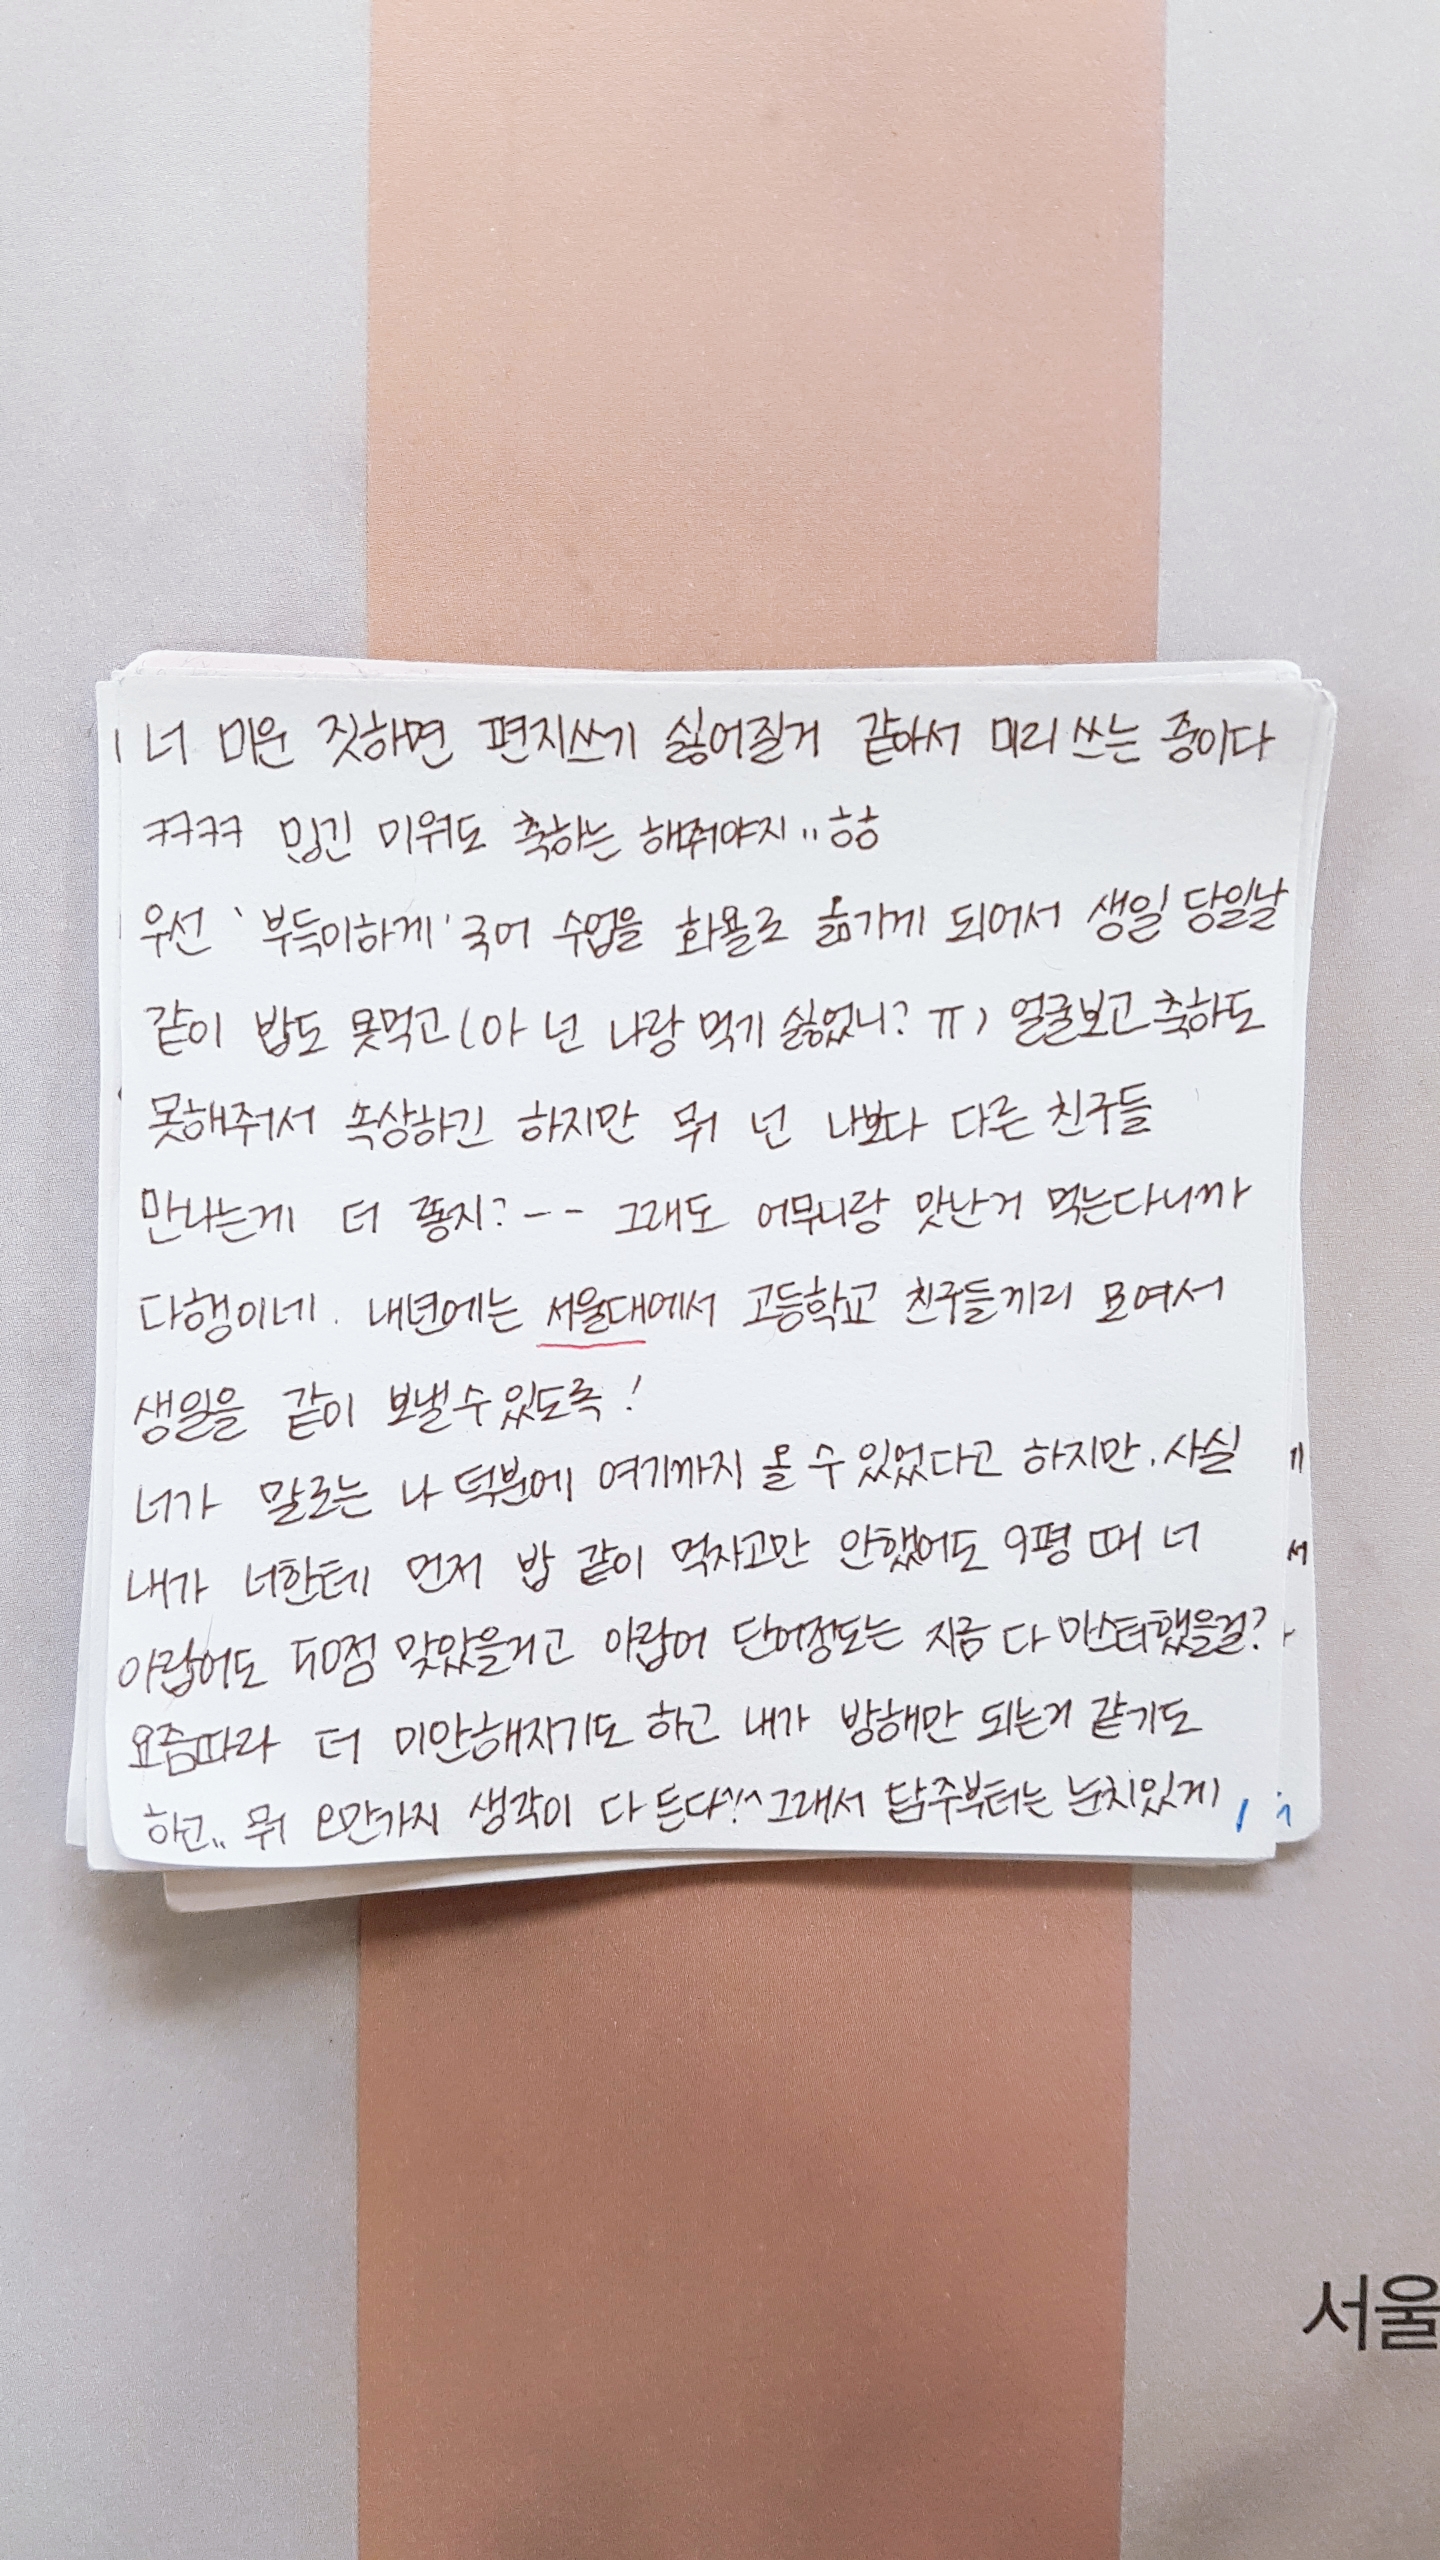 너 미운 짓하면 편지쓰기 싫어질거 같아서 미리 쓰는 중이다
ㅋㅋㅋㅋ 밉긴 미워도 축하는 해줘야지.. ㅎㅎ
우선 '부득이하게' 국어 수업을 화욜로 옮기게 되어서 생일 당일날
같이 밥도 못먹고 (아 넌 나랑 먹기 싫었니? ㅠ) 얼굴보고 축하도
못해줘서 속상하긴 하지만 뭐 넌 나보다 다른 친구들
만나는게 더 좋지? -- 그래도 어무니랑 맛난거 먹는다니까
다행이네. 내년에는 서울대에서 고등학교 친구들끼리 모여서
생일을 같이 보낼 수 있도록!
너가 말로는 나 덕분에 여기까지 올 수 있었다고 하지만, 사실
내가 너한테 먼저 밥 같이 먹자고만 안했어도 9평 때 너
아랍어도 50점 맞았을거고 아랍어 단어정도는 지금 다 마스터했을걸?
요즘따라 더 미안해자기도 하고 내가 방해만 되는거 같기도
하고.. 뭐 오만가지 생각이 다 든다^^ 그래서 담주부터는 눈치있게
서울